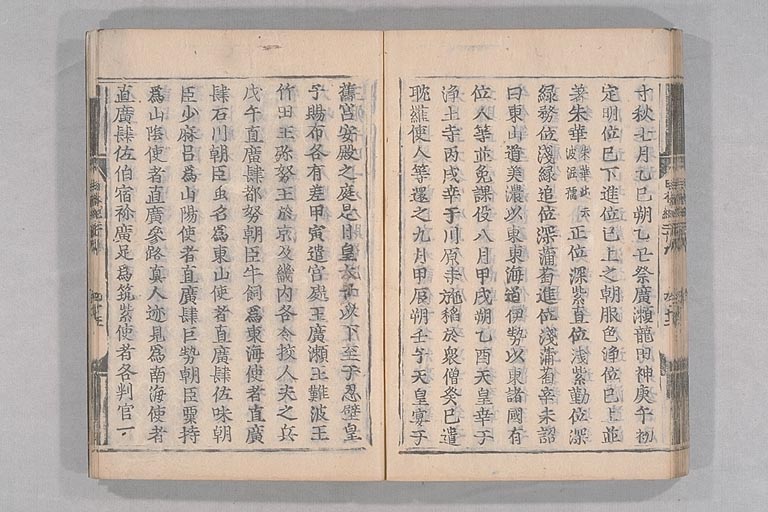 寸秋七月乙巳朔乙亡祭廣瀬龍田神庚午初
定明位已下進位已上之朝服色浄位已上並
著朱華朱華此云波泥孺正位深紫直位浅紫勤位深
緑務位浅緑追位深蒲萄進位浅蒲萄辛未詔
曰東山道美濃以東東海道伊勢以東諸國有
位人等並免課役八月甲戌朔乙酉天皇幸于
浄土寺丙戌幸于川原寺施稻於衆僧癸巳遣
耽羅使人等還之九月甲辰朔壬子天皇宴于
舊宮安殿之庭是日皇太子以下至于忍壁皇
子賜布各有差甲寅遣宮處王廣瀬王難波王
竹田王弥努王於京及畿内各令挍人夫之兵
戊午直廣肆都努朝臣牛飼為東海使者直廣
肆石川朝臣虫名為東山使者直廣肆佐味朝
臣少麻呂為山陽使者直廣肆巨勢朝臣粟持
為山陰使者直廣參路真人迹見為南海使者
直廣肆佐伯宿祢廣足為筑紫使者各判官一